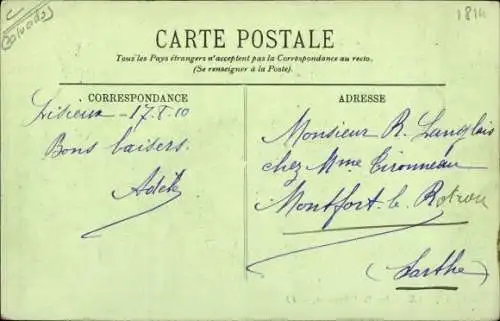 (Calvados)
1814
CARTE POSTALE
Tous les Pays étrangers n'acceptent pas la Correspondance au recto.
(Se renseigner à la Poste).
CORRESPONDANCE
Lisieux - 17.8.10
Bons baisers.
Adèle
ADRESSE
Monsieur R. Langlais
chez Mme Tironneau
Montfort-le Rotrou
(Sarthe)